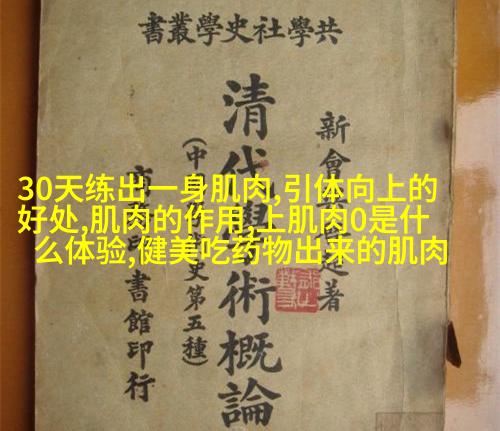 共學社史學叢書
新會 著
清代學術概論
(中 史第五種)
書館印行
30天练出一身肌肉,引体向上的
好处,肌肉的作用,上肌肉0是什
么体验,健美吃药物出来的肌肉